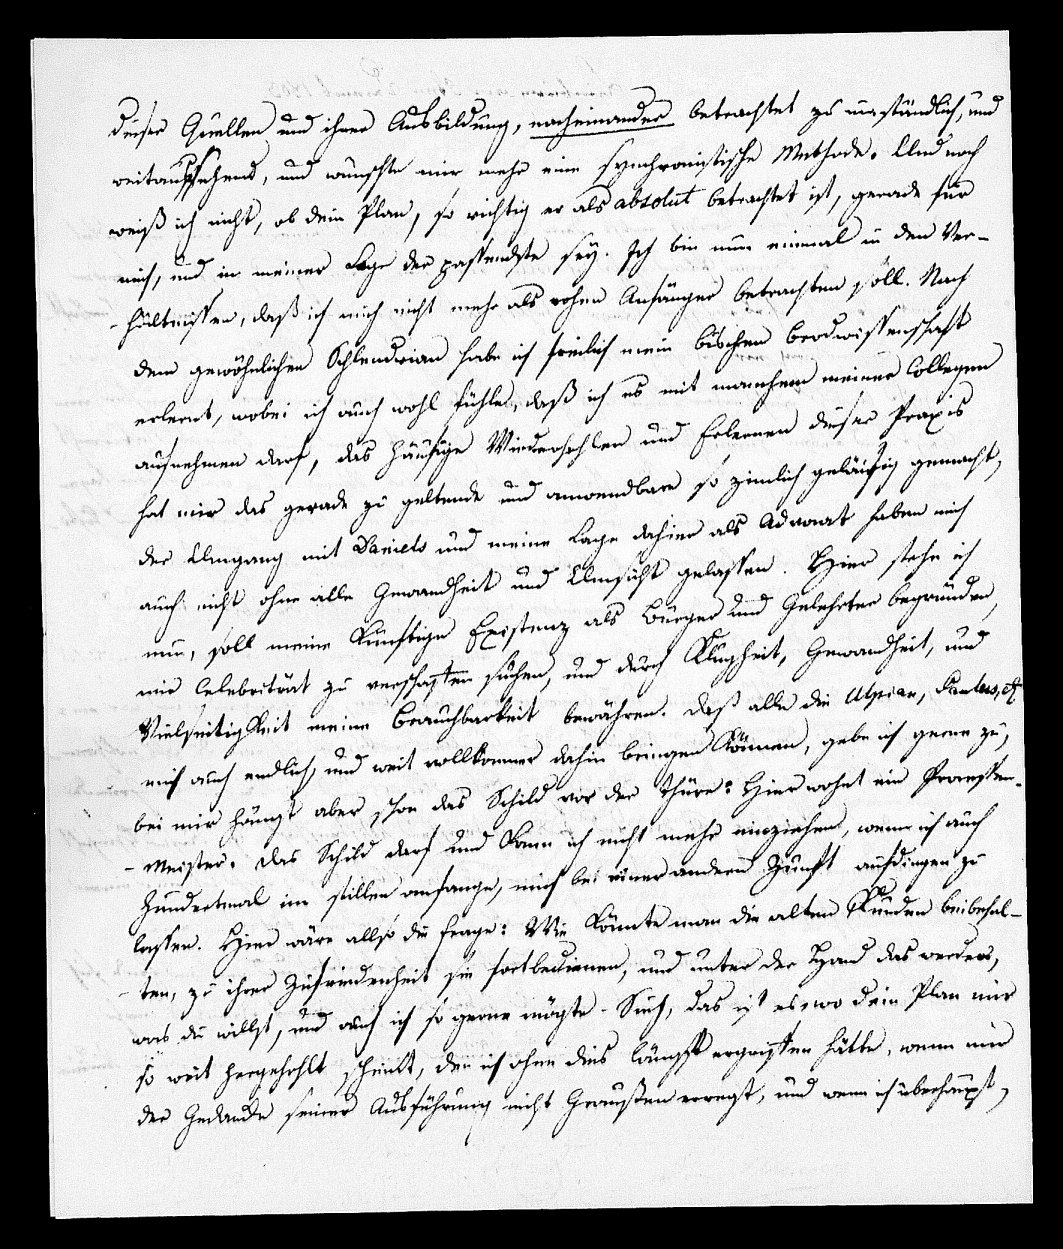 dieser Quellen und ihrer Ausbildung, nacheinander betrachtet zu umständlich, und
weitaussehend, und wünschte mir mehr eine synchronistische Methode. Und noch
weiß ich nicht, ob dein Plan, so richtig er als absolut betrachtet ist, gerade für
mich, und in meiner Lage der passendste sey. Ich bin nun einmal in den Ver-
-hältnissen, daß ich mich nicht mehr als rohen Anfänger betrachten soll. Nach
dem gewöhnlichen Schlendrian habe ich freilich mein bischen Brodwissenschaft
erlernt, wobei ich auch wohl fühle, daß ich es mit manchem meiner Collegen
aufnehmen darf, das häufige Wiederhohlen und Erlernen dieser Praxis
hat mir das gerade zu geltende und anwendbare so zimlich geläufig gemacht,
der Umgang mit Daniels und meine Lage dahier als Advocat haben mich
auch nicht ohne alle Gewandheit und Umsicht gelassen. Hier stehe ich
nun, soll meine künftige Existenz als Bürger und Gelehrter begründen,
mir Celebrität zu verschaffen suchen, und durch Klugheit, Gewandheit, und
Vielseitigkeit meine Brauchbarkeit bewähren. Daß alle die Ulpian, Paulus, etc
mich auch endlich, und weit vollkomner dahin bringen können, gebe ich gerne zu,
bei mir hängt aber schon das Schild vor der Thüre: Hier wohnt ein
-Meister. Das Schild darf und kann ich nicht mehr einziehen, wenn ich auch
hundertmal im stillen anfange, mich bei einer andern Zunft aufdingen zu
lassen. Hier wäre allso die Frage: Wie könnte man die alten Kunden beibehal-
-ten, zu ihrer Zufriedenheit sie fortbedienen, und unter der Hand das werden,
was du willst, und auch ich so gerne mögte. Sieh, das ist es, wo dein Plan mir
so weit hergehohlt scheint, den ich ohne dies längst ergriffen hätte, wenn mir
der Gedanke seiner Ausführung nicht Graußen erregt, und wenn ich überhaupt,